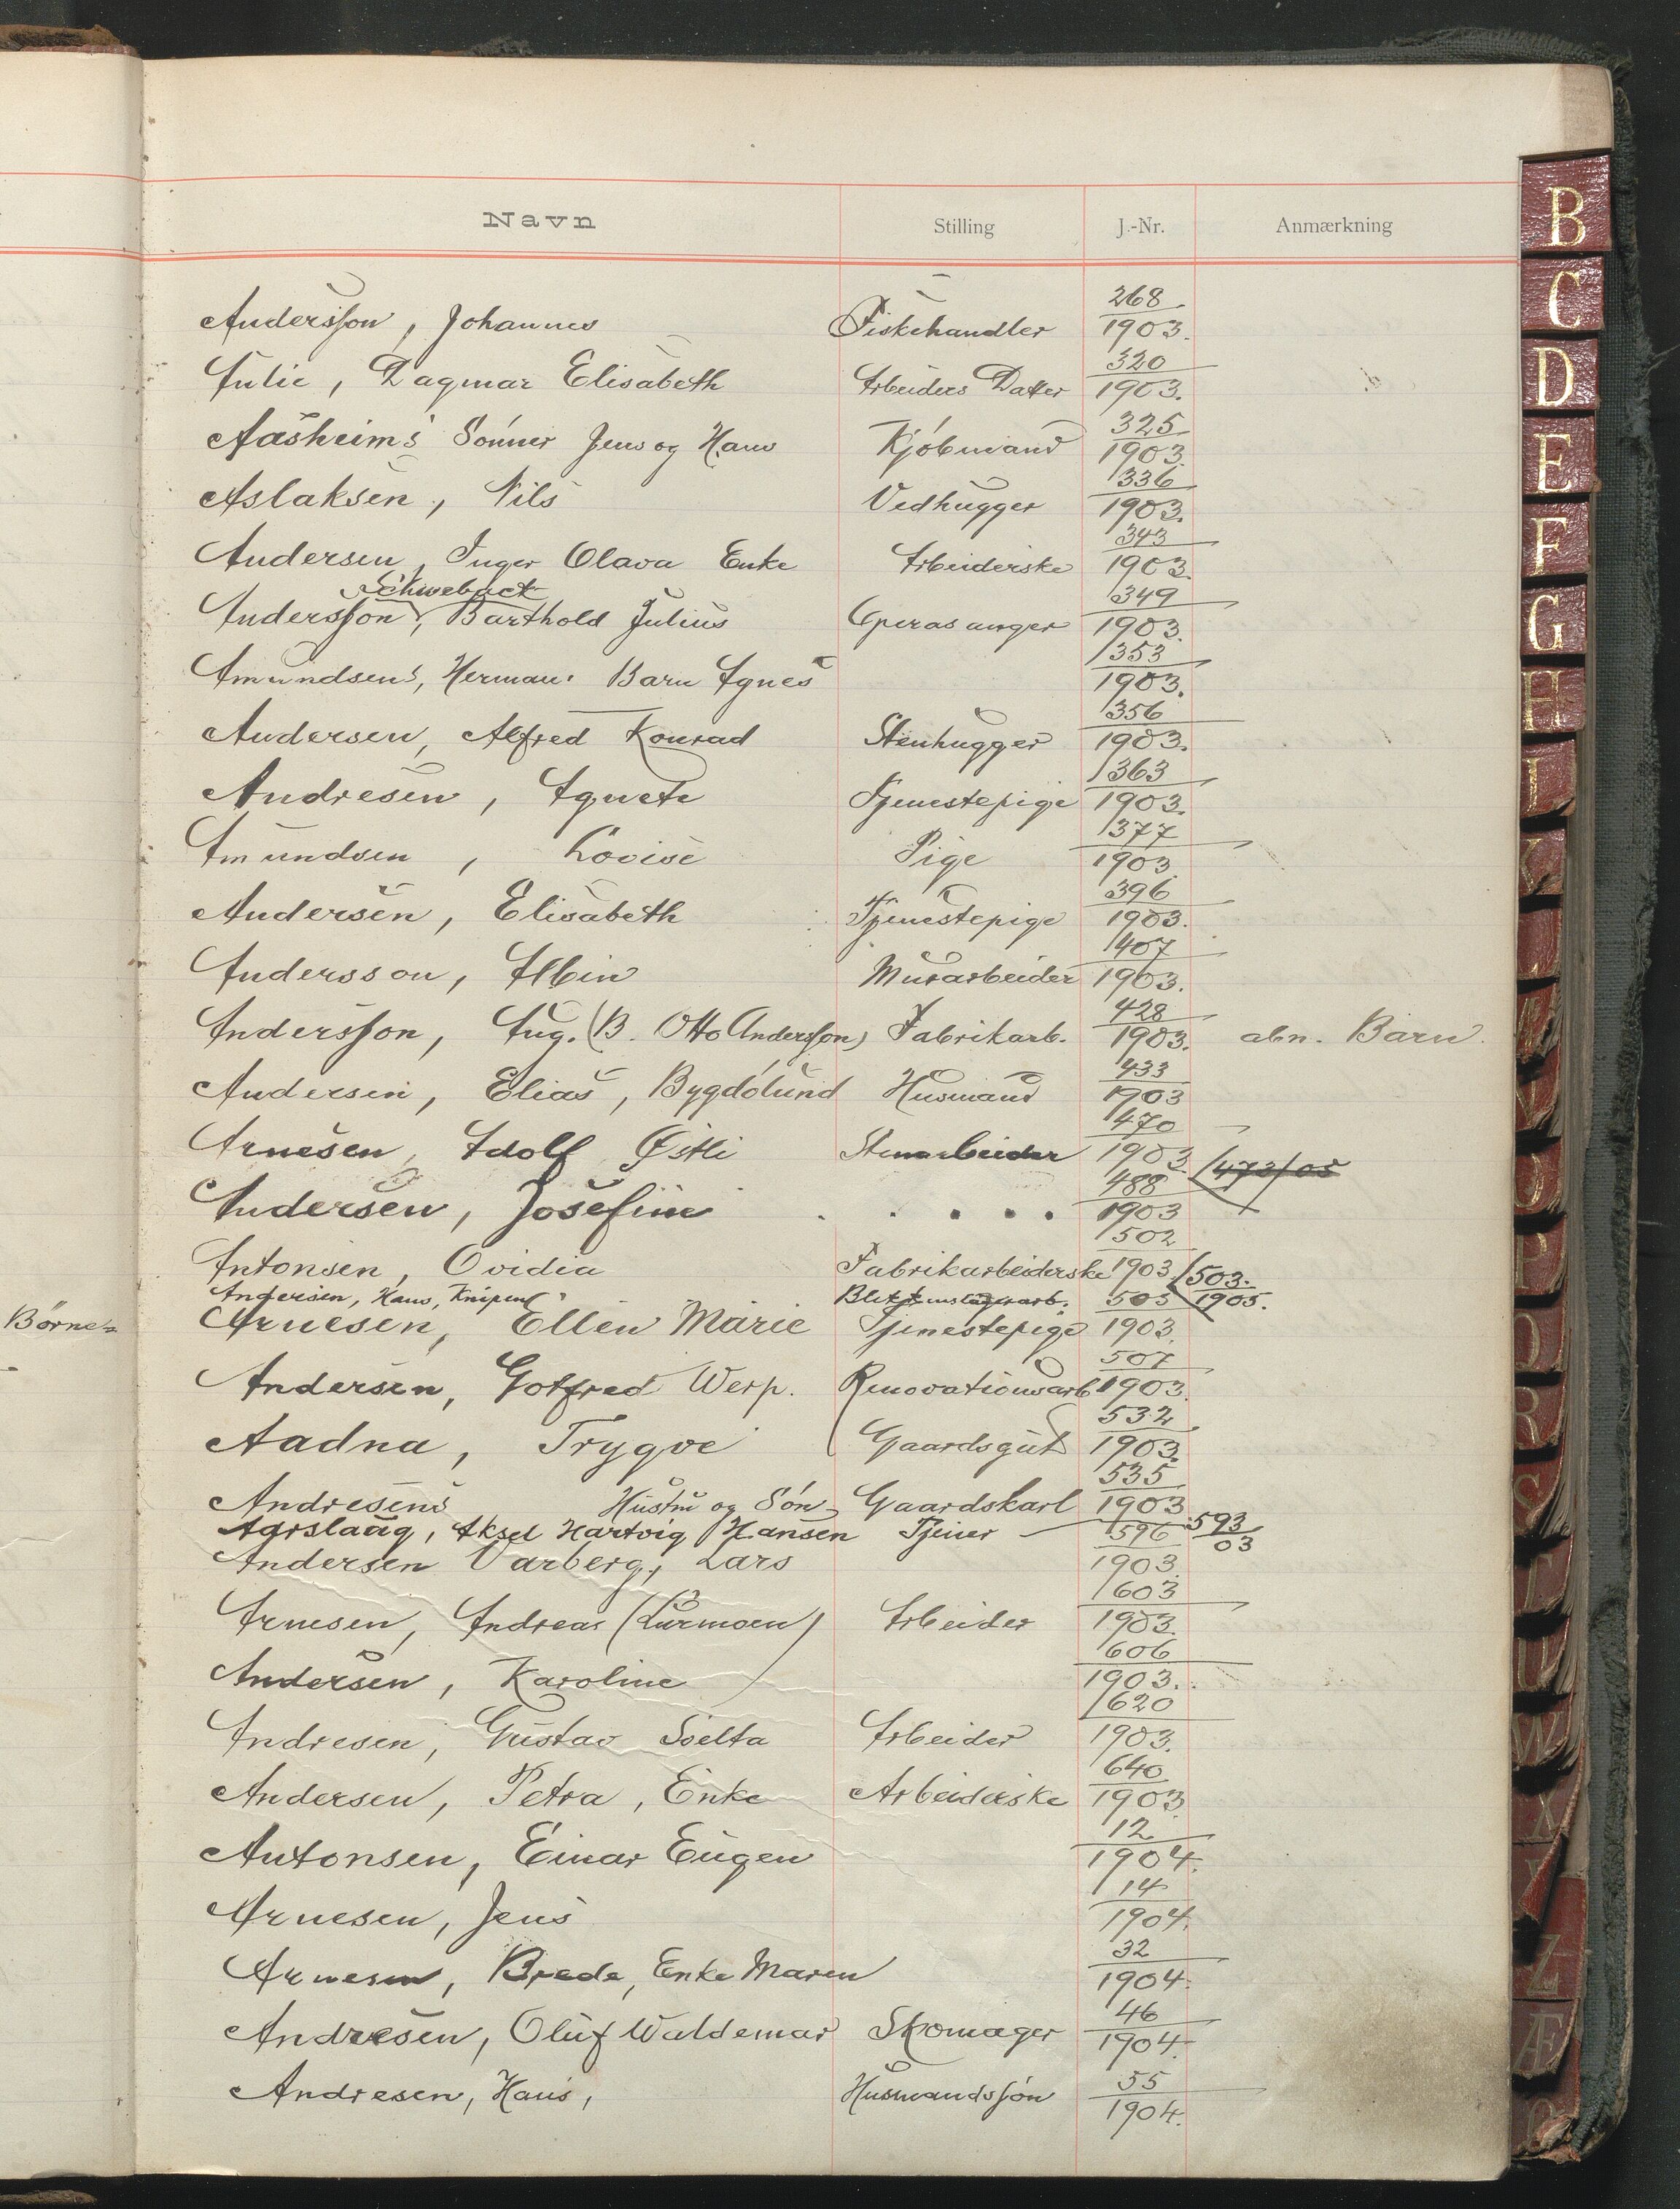 Navn Stilling J.-Nr. Anmærkning
Andersson, Johannes Fiskehandler 268/1903.
Julie, Dagmar Elisabeth Arbeiders Datter 320/1903.
Aasheims Sønner Jens og Hans Kjøbmand 325/1903
Aslaksen, Nils Vedhugger 336/1903.
Andersen, Inger Olava Enke Arbeiderske 343/1903.
Andersson, Barthold Julius Operasanger 349/1903.
Amundsens, Herman: Barn Agnes 353/1903.
Andersen, Alfred Konrad Stenhugger 356/1903.
Andresen, Agnete Tjenestepige 363/1903.
Amundsen, Lovise Pige 377/1903.
Andersen, Elisabeth Tjenestepige 396/1903.
Andersson, Albin Murarbeider 407/1903.
Andersson, Aug. (B. Otto Andersson) Fabrikarb. 428/1903. abn. Barn.
Andersen, Elias, Bygdølund Husmand 433/1903
Arnesen, Adolf Østli Stenarbeider 470/1903 473/05
Andersen, Josefine . . . . . 488/1903
Antonsen, Ovidia Fabrikarbeiderske 502/1903 503./1905.
Andersen, Hans, Knipen
Børne=
Arnesen, Ellen Marie Tjenestepige 505/1903.
Andersen, Gotfred Werp. Renovationsarb 507/1903.
Aadna, Trygve Gaardsgut 532/1903.
Andresens Hustru og Søn Gaardskarl 535/1903
Agrslaag, Aksel Hartvig Hansen Tjener 593/03
Andersen Varberg, Lars 596/1903.
Arnesen, Andreas (Lurmoen) Arbeider 603/1903.
Andersen, Karoline 606/1903.
Andresen, Gustav Arbeider 620/1903.
Andersen, Petra, Enke Arbeiderske 640/1903.
Antonsen, Einar Eugen 12/1904.
Arnesen, Jens 14/1904.
Arnesen, Brede, Enke Maren 32/1904.
Andresen, Oluf Waldemar Skomager 46/1904.
Andresen, Hans, Husmandssøn 55/1904.
B
C
D
E
F
G
H
I
K
L
M
N
O
P
Q
R
S
T
U
W
X
Y
Z
Æ
Ø